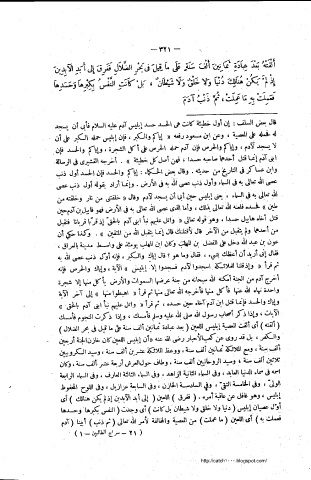 — ٣٢١ —
ألقته بعد عبادة ثمانين ألف سنة على ما قيل في بحر الضلال فغرق إلى أبد الآبدين
إذ لم يكن هنالك دنيا ولا خلق ولا شيطان، بل كانت النفس بكبرها وحسدها
فعملت به ما عملت، ثم ذنب آدم
قال بعض السلف: إن أول خطيئة كانت هي الحسد حسد إبليس آدم عليه السلام فأبى أن يسجد
له فحمله على المعصية، وعن ابن مسعود رفعه «إياكم والكبر، فإن إبليس حمله الكبر على أن
لا يسجد لآدم، وإياكم والحرص فإن آدم حمله الحرص على أكل الشجرة، وإياكم والحسد فإن
ابني آدم إنما قتل أحدهما صاحبه حسدا، فهن أصل كل خطيئة». أخرجه القشيري في الرسالة
وابن عساكر في التاريخ من حديثه. وقال بعض الحكماء: إياكم والحسد فإن الحسد أول ذنب
عصى الله تعالى به في السماء وأول ذنب عصى الله به في الأرض. وإنما أراد بقوله أول ذنب عصى
الله تعالى به في السماء، يعني إبليس حين أبى أن يسجد لآدم وقال «خلقتني من نار وخلقته من
طين» فحسده فلعنه الله بذلك. وأما الذي عصى الله تعالى به في الأرض فهو قابيل بن آدم حين
قتل أخاه هابيل حسدا، وهو قوله تعالى «واتل عليهم نبأ ابني آدم بالحق إذ قربا قربانا فتقبل
من أحدهما ولم يتقبل من الآخر قال لأقتلنك قال إنما يتقبل الله من المتقين».
عون بن عبد الله دخل على الفضل بن المهلب وكان ابن المهلب يومئذ على واسط مدينة بالعراق،
فقال إني أريد أن أعظك بشيء، فقال وما هو؟ قال إياك والكبر، فإنه أول ذنب عصى الله به
ثم قرأ «وإذ قلنا للملائكة اسجدوا لآدم فسجدوا إلا إبليس» الآية، وإياك والحرص فإنه
أخرج آدم من الجنة أسكنه الله سبحانه من جنة عرضها السموات والأرض يأكل منها إلا شجرة
واحدة نهاه الله عنها فأكل منها فأخرجه الله تعالى منها ثم قرأ «اهبطوا منها» إلى آخر الآية
وإياك والحسد فإنما قتل ابن آدم أخاه حين حسده، ثم قرأ «واتل عليهم نبأ ابني آدم بالحق»
الآيات، وإذا ذكر أصحاب رسول الله صلى الله عليه وسلم فأمسك، وإذا ذكرت النجوم فأمسك
(ألقته) أي ألقت المعصية إبليس اللعين (بعد عبادة ثمانين ألف سنة على ما قيل في بحر الضلال)
والكفر، بل قد روي عن كعب الأحبار رضي الله عنه «أن إبليس اللعين كان خازن الجنة أربعين
ألف سنة، ومع الملائكة ثمانين ألف سنة، ووعظ الملائكة عشرين ألف سنة، وسيد الكروبيين
ثلاثين ألف سنة وسيد الروحانيين ألف سنة، وطاف حول العرش أربعة عشر ألف سنة، وكان
اسمه في سماء الدنيا العابد، وفي السماء الثانية الزاهد، وفي السماء الثالثة العارف، وفي الرابعة
الولي، وفي الخامسة التقي، وفي السادسة الخازن، وفي السابعة عزازيل، وفي اللوح المحفوظ
إبليس، وهو غافل عن عاقبة أمره. (فغرق) اللعين (إلى أبد الآبدين إذ لم يكن هنالك) أي
أول عصيان إبليس (دنيا ولا خلق ولا شيطان بل كانت) أي وجدت (النفس بكبرها وحسدها
فعملت به) أي اللعين (ما عملت) من المعصية والمخالفة لأمر الله تعالى (ثم ذنب) أبينا (آدم
(٢١ — سراج الطالبين — ١)
http://catch١٠٠٠.blogspot.com/